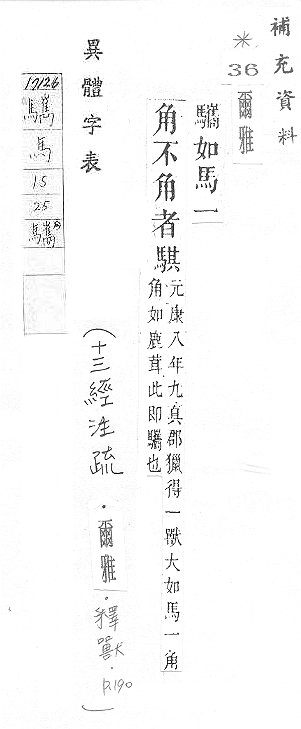 補充資料
＊
36
爾雅
驨如馬一
角不角者騏
元康八年九真郡獵得一獸大如馬一角
角如鹿茸此即驨也
(十三經注疏．爾雅．釋獸．P.190)
異體字表
17126
馬
15
25